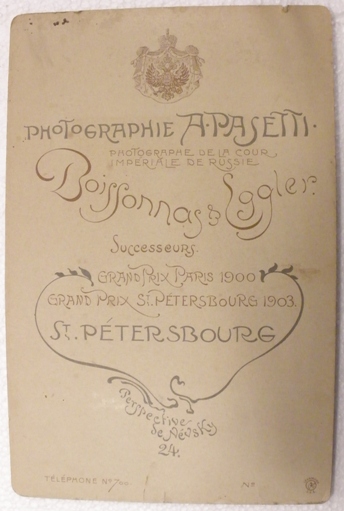 PHOTOGRAPHIE A. PASETTI.
PHOTOGRAPHE DE LA COUR
IMPERIALE DE RUSSIE
Boissonnas & Eggler.
Successeurs.
GRAND PRIX PARIS 1900
GRAND PRIX ST. PÉTERSBOURG 1903.
ST. PÉTERSBOURG
Perspective
de Nevsky
24.
TÉLÉPHONE No
No